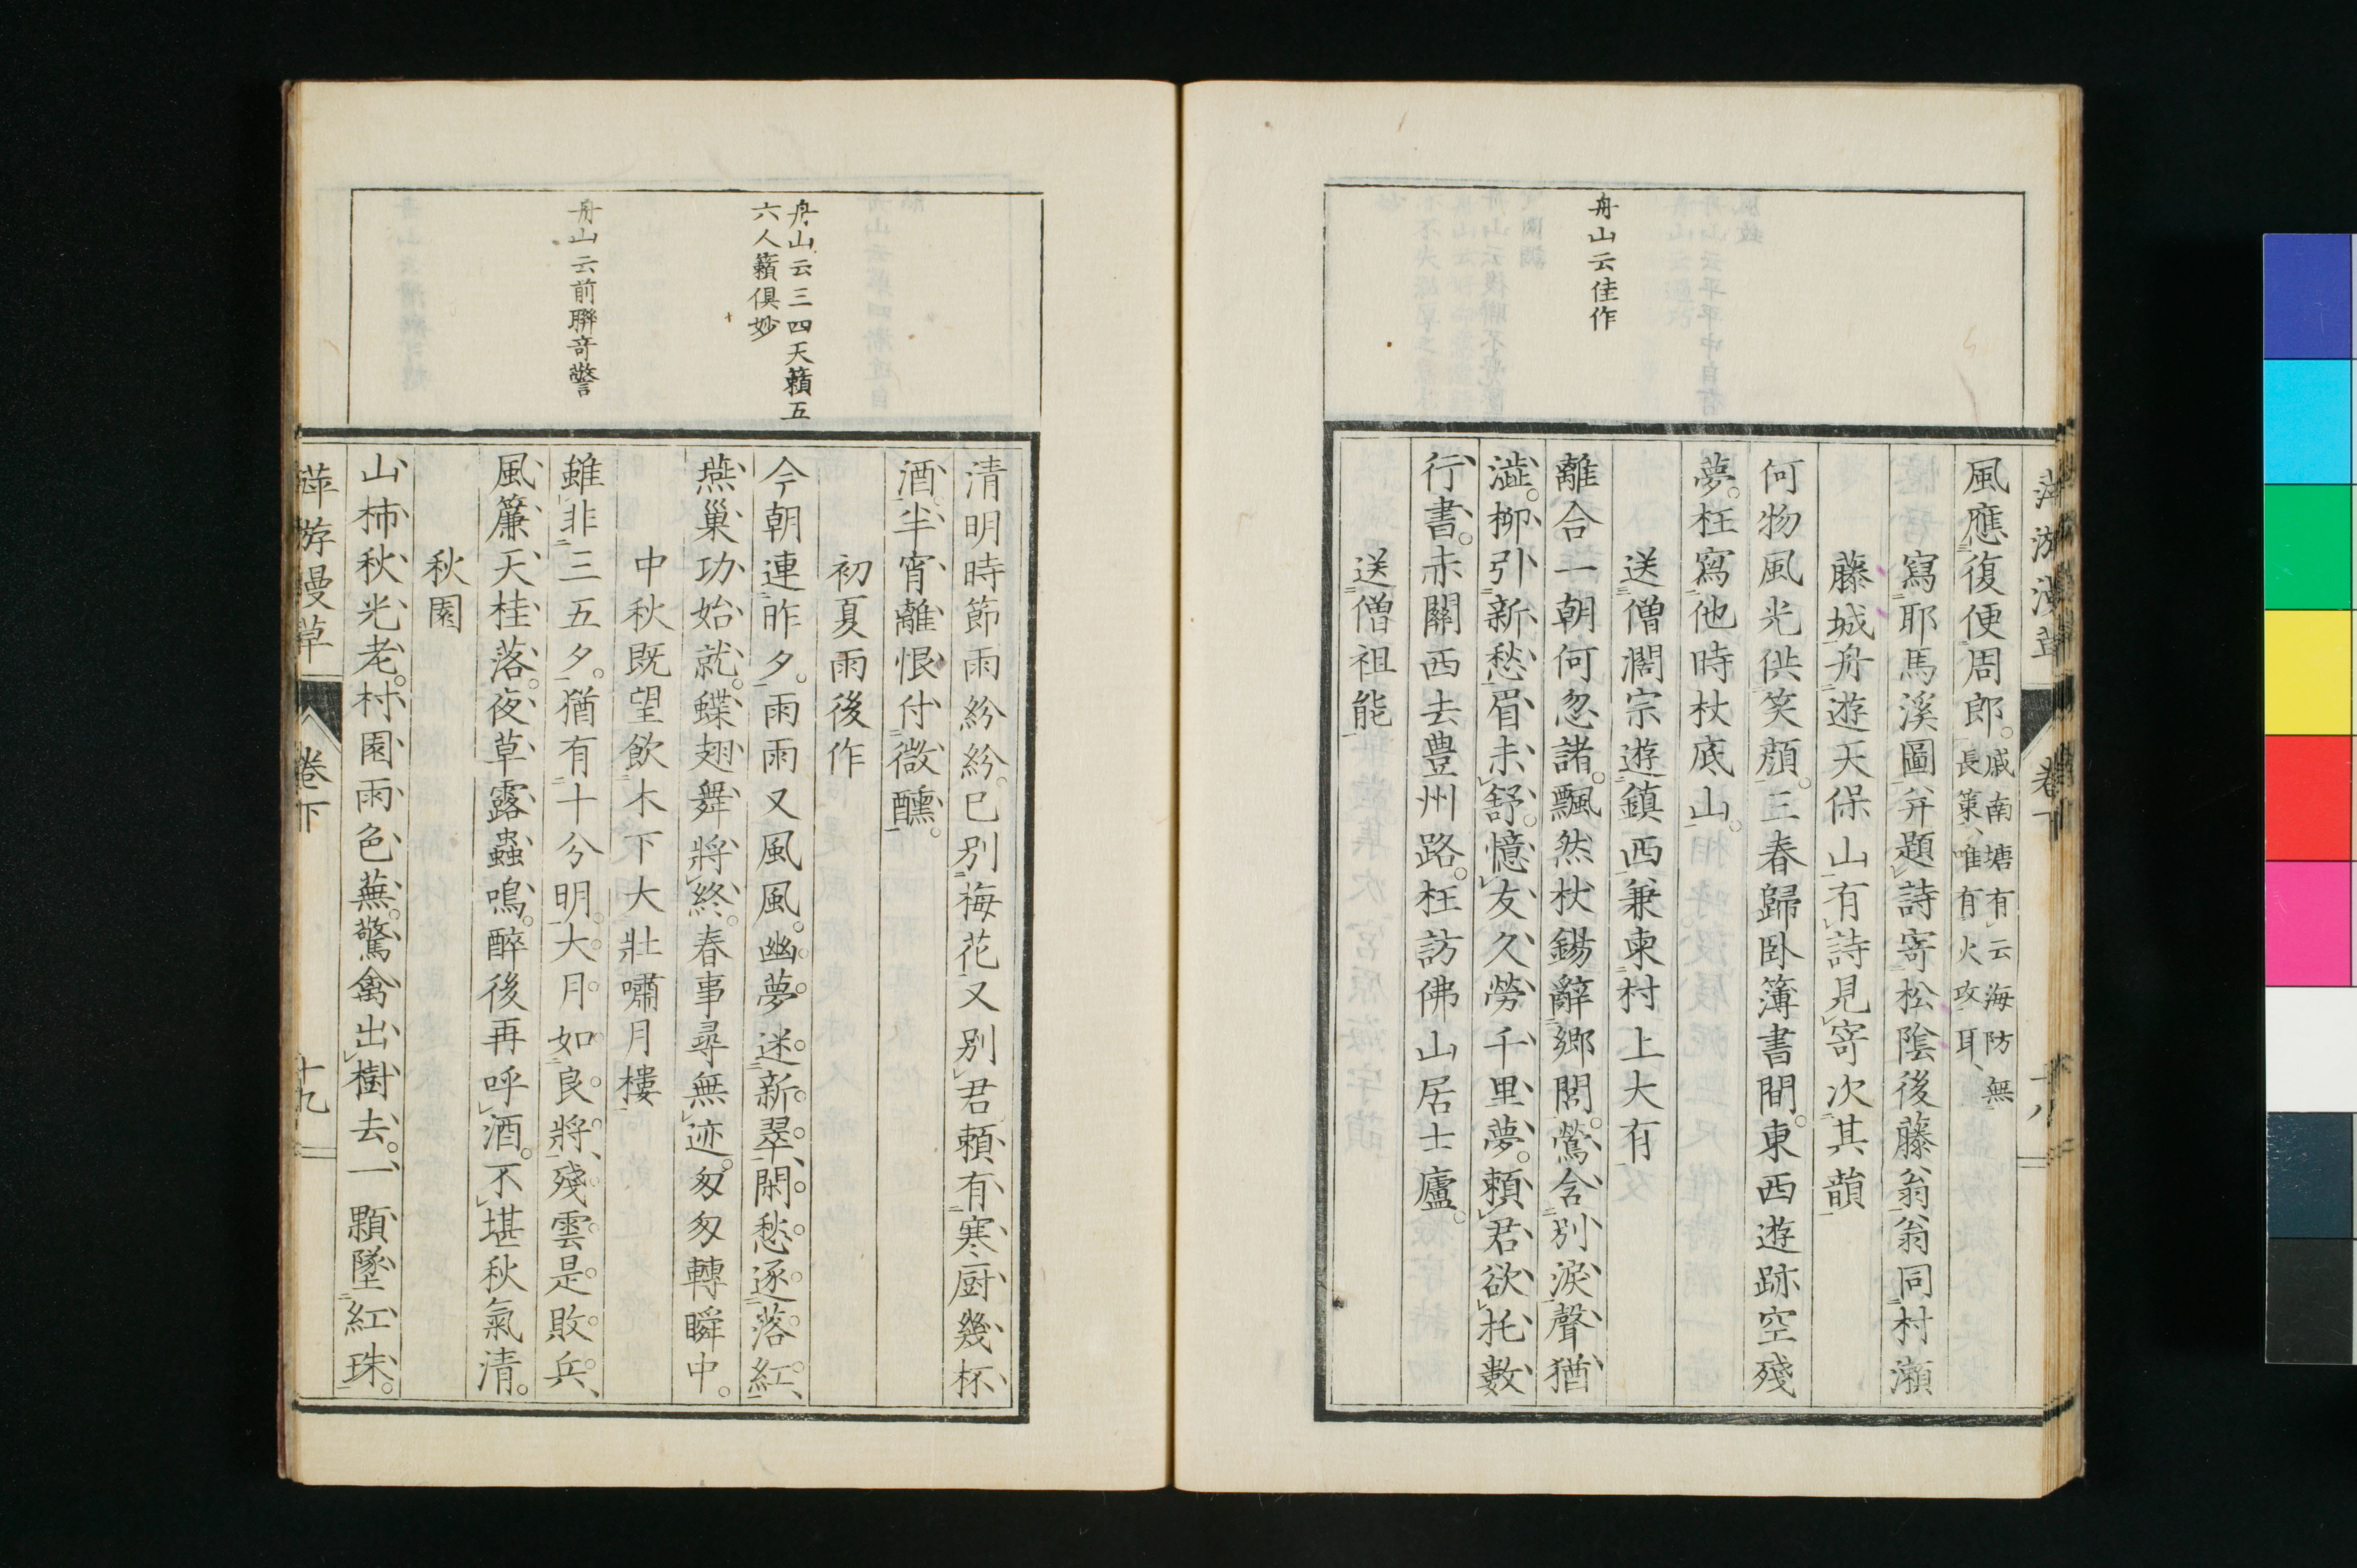 舟山云佳作
萍游漫草 卷下 十八
風應復便周郎。戚南塘有云海防無
長策、唯有火攻耳、
寫耶馬溪圖并題詩寄松陰後藤翁翁同村瀬
藤城舟遊天保山有詩見寄次其韻
何物風光供笑顏。三春歸臥簿書間。東西遊跡空殘
夢。枉寫他時杖底山。
送僧濶宗遊鎮西兼柬村上大有
離合一朝何忽諸。飄然杖錫辭鄉閭。鶯含別淚聲猶
澁。柳引新愁眉未舒。憶友久勞千里夢。賴君欲托數
行書。赤關西去豊州路。枉訪佛山居士廬。
送僧祖能
舟山云三四天籟五
六人籟俱妙
舟山云前聯奇警
清明時節雨紛紛。已別梅花又別君。賴有寒厨幾杯
酒。半宵離恨付微醺。
初夏雨後作
今朝連昨夕。雨雨又風風。幽夢迷新翠。閑愁逐落紅。
燕巢功始就。蝶翅舞將終。春事尋無迹。匆匆轉瞬中。
中秋既望飲木下大壯嘯月樓
雖非三五夕。猶有十分明。大月如良將。殘雲是敗兵。
風簾天桂落。夜草露蟲鳴。醉後再呼酒。不堪秋氣清。
秋園
山柿秋光老。村園雨色蕪。驚禽出樹去。一顆墜紅珠。
萍游漫草 卷下 十九